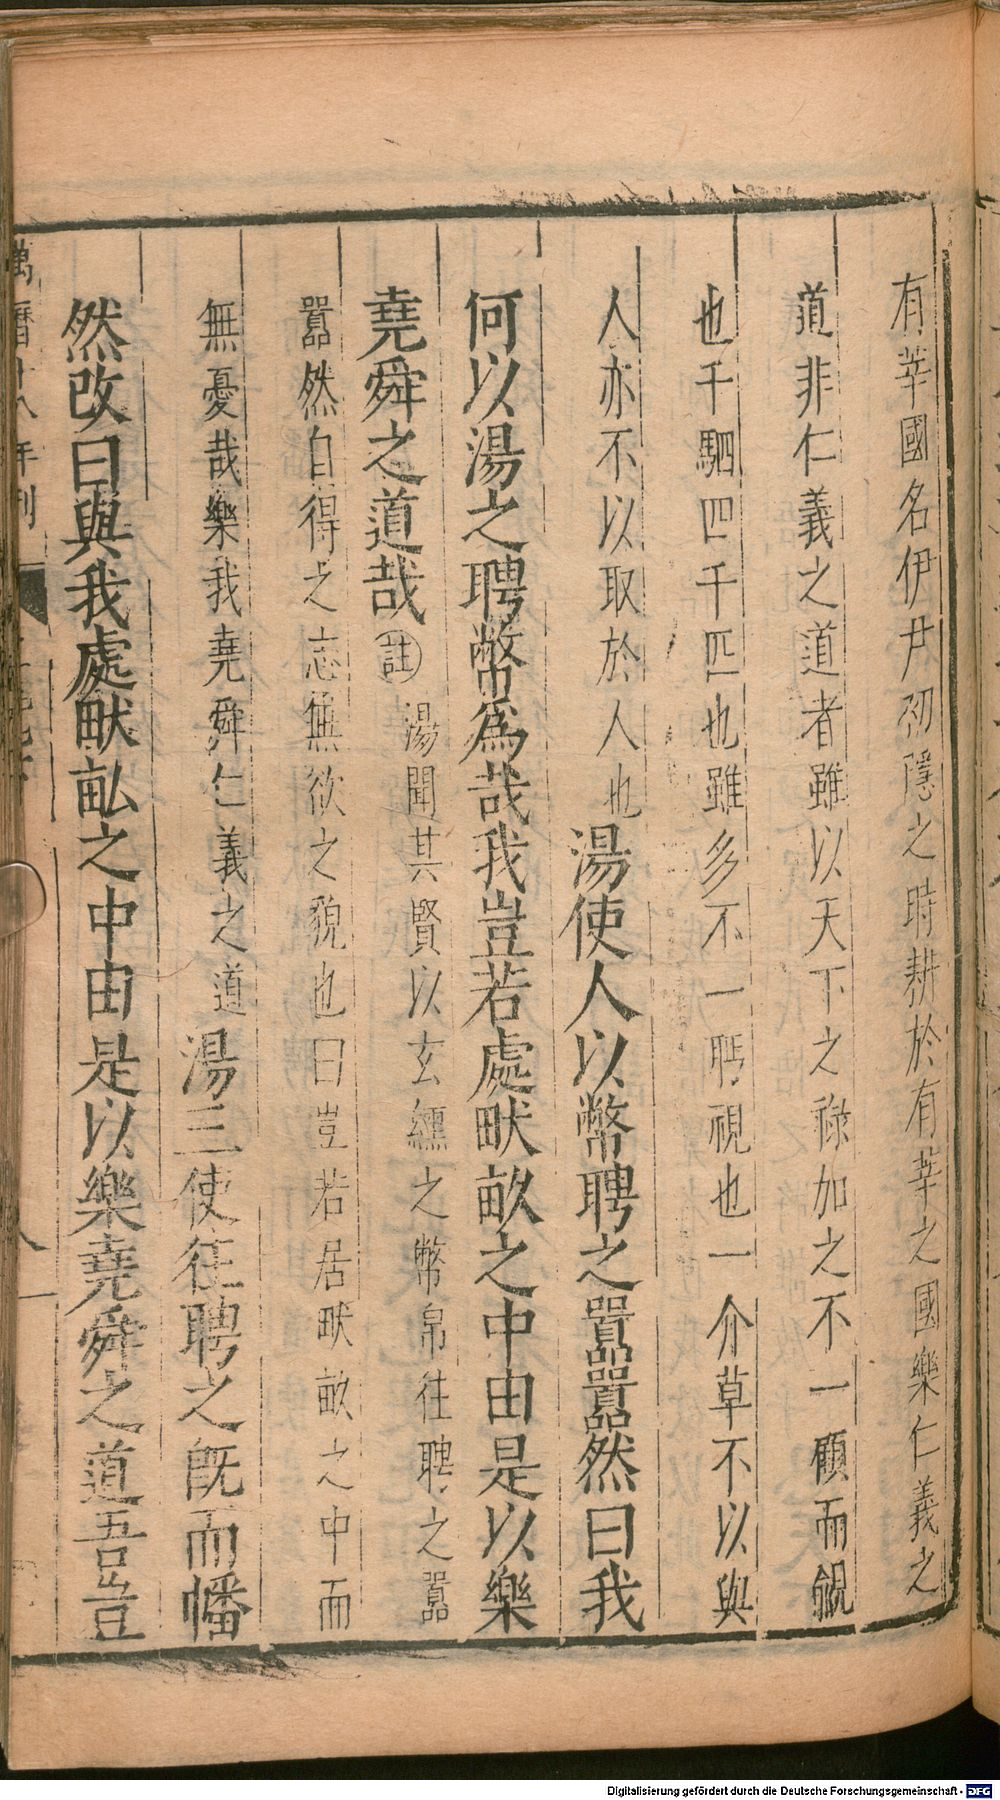 有莘國名伊尹初隱之時耕於有莘之國樂仁義之
道非仁義之道者雖以天下之祿加之不一顧而覦
也千駟四千匹也雖多不一眄視也一介草不以與
人亦不以取於人也湯使人以幣聘之囂囂然曰我
何以湯之聘幣為哉我豈若處畎畝之中由是以樂
堯舜之道哉註湯聞其賢以玄纁之幣帛往聘之囂
囂然自得之志無欲之貌也曰豈若居畎畝之中而
無憂哉樂我堯舜仁義之道湯三使往聘之既而幡
然改曰與我處畎畝之中由是以樂堯舜之道吾豈
萬曆十八年刊
Digitalisierung gefördert durch die Deutsche Forschungsgemeinschaft - DFG